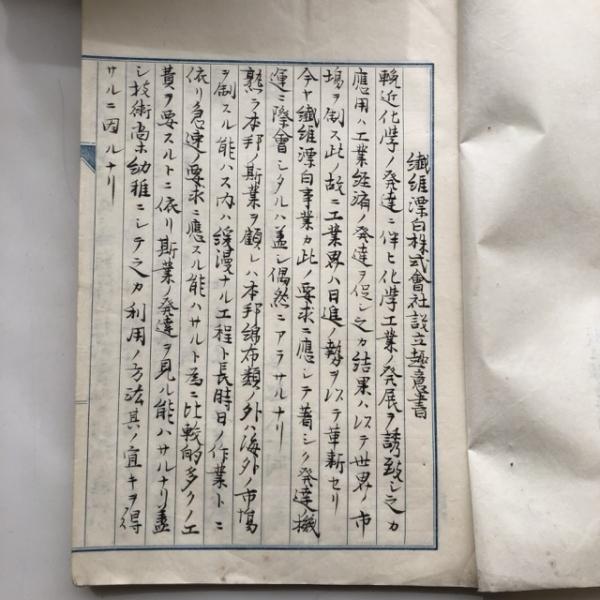 繊維漂白株式會社設立趣意書
輓近化学ノ発達ニ伴ヒ化学工業ノ発展ヲ誘致シ之カ
應用ハ工業経済ノ発達ヲ促シ之カ結果ハ以テ世界ノ市
場ヲ制ス此ノ故ニ工業界ハ日進ノ勢ヲ以テ革新セリ
今ヤ繊維漂白事業カ此ノ要求ニ應シテ著シク発達機
運ニ際會シタルハ盖シ偶然ニアラサルナリ
熟ラ本邦ノ斯業ヲ顧レハ本邦綿布類ノ外ハ海外ノ市場
ヲ制スル能ハス内ハ緩漫ナル工程ト長時日ノ作業トニ
依リ急速ノ要求ニ應スル能ハサルト為ニ比較的多クノ工
費ヲ要スルトニ依リ斯業ノ発達ヲ見ル能ハサルナリ盖
シ技術尚ホ幼稚ニシテ之カ利用ノ方法其ノ宜キヲ得
サルニ因ルナリ